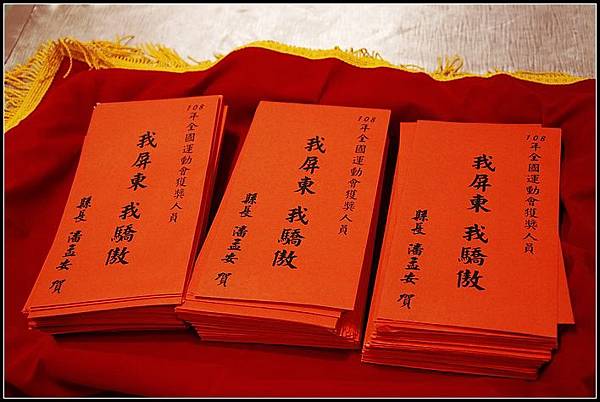 108年全國運動會獲獎人員
我屏東 我驕傲
縣長 潘孟安 賀
108年全國運動會獲獎人員
我屏東 我驕傲
縣長 潘孟安 賀
108年全國運動會獲獎人員
我屏東 我驕傲
縣長 潘孟安 賀